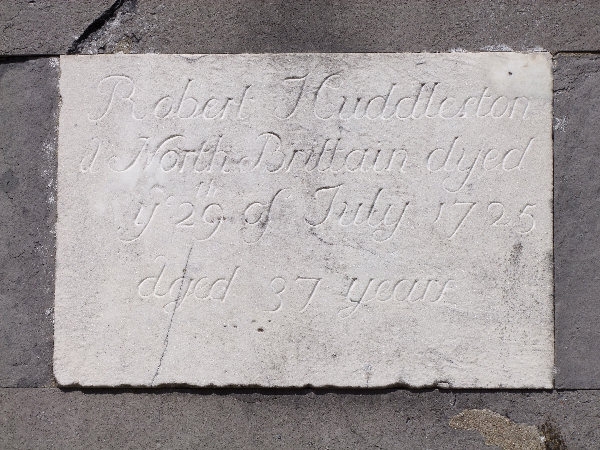 Robert Huddleston
North Brittain dyed
yᵉ 29ᵗʰ of July 1725
aged 37 years